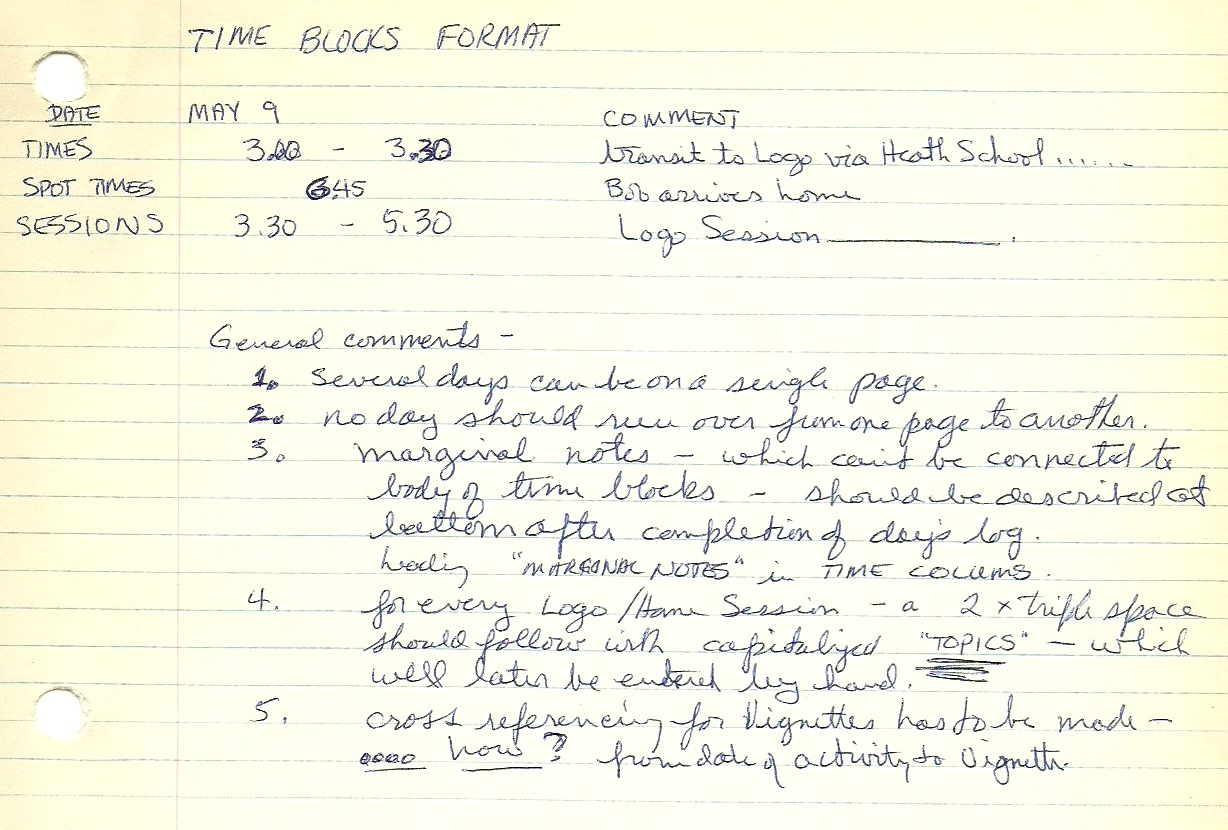 TIME BLOCKS FORMAT
DATE MAY 9 COMMENT
TIMES 3.00 - 3.30 transit to Logo via Heath School ......
SPOT TIMES 6.45 Bob arrives home
SESSIONS 3.30 - 5.30 Logo Session ________.
General comments -
1. Several days can be on a single page.
2. no day should run over from one page to another.
3. marginal notes - which can't be connected to
body of time blocks - should be described at
bottom after completion of day's log.
heading "MARGONAL NOTES" in TIME COLUMS.
4. for every Logo/Home Session - a 2 x triple space
should follow with capitalized "TOPICS" - which
will later be entered by hand.
5. cross referencing for Vignettes has to be made -
how? from date of activity to Vignette.